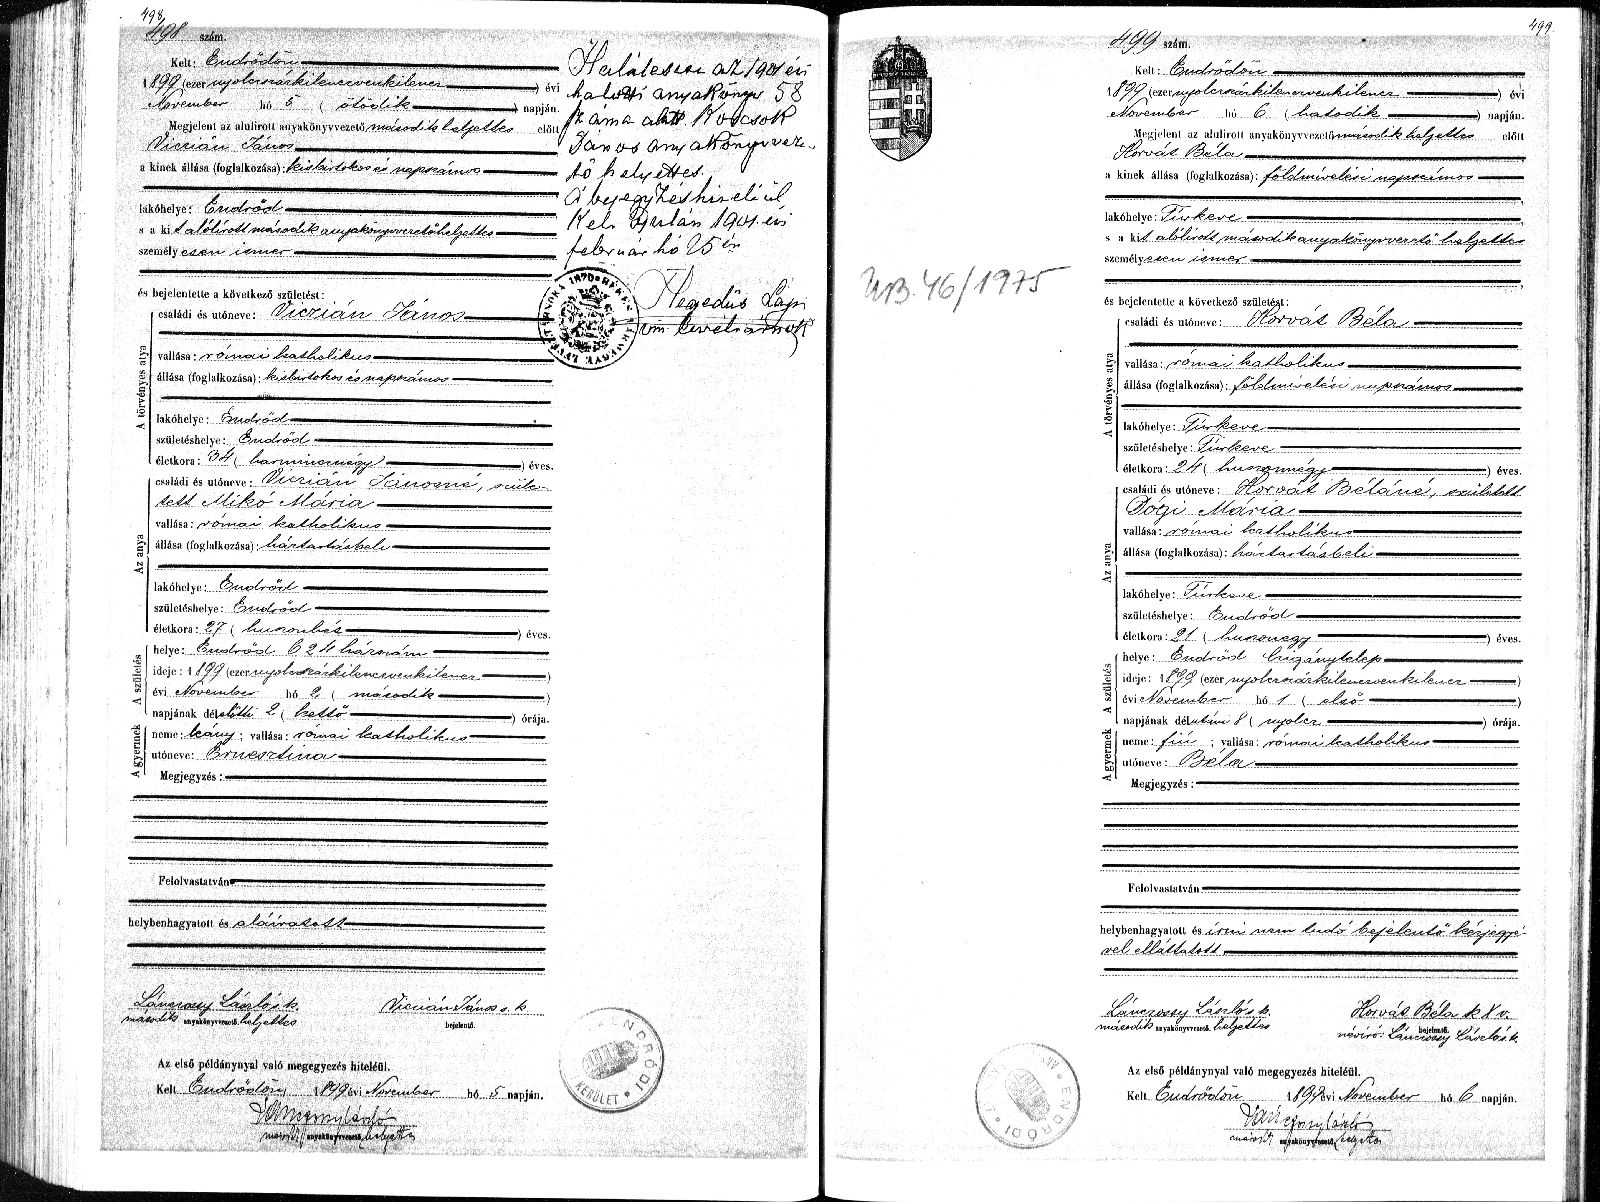 498.
498 szám.
Kelt: Endrődön
1899 (ezer nyolcszázkilencvenkilenc) évi
November hó 5 (ötödik) napján.
Megjelent az alulirott anyakönyvvezető második helyettes előtt
Viczián János
a kinek állása (foglalkozása): kisbirtokos és napszámos
lakóhelye: Endrőd
s a kit alólirott második anyakönyvvezető helyettes
személyesen ismer
és bejelentette a következő születést:
A törvényes atya
családi és utóneve: Viczián János
vallása: római katholikus
állása (foglalkozása): kisbirtokos és napszámos
lakóhelye: Endrőd
születéshelye: Endrőd
életkora: 34 (harmincnégy) éves.
Az anya
családi és utóneve: Viczián Jánosné, szüle-
tett Mikó Mária
vallása: római katholikus
állása (foglalkozása): háztartásbeli
lakóhelye: Endrőd
születéshelye: Endrőd
életkora: 27 (huszonhét) éves.
A születés
helye: Endrőd 624 házszám
ideje: 1899 (ezer nyolcszázkilencvenkilenc)
évi November hó 2 (második)
napjának délelőtti 2 (kettő) órája.
A gyermek
neme: leány; vallása: római katholikus
utóneve: Ernesztina
Megjegyzés:
Felolvastatván
helybenhagyatott és aláiratott
Lánczossy László s. k.
második anyakönyvvezető helyettes
Viczián János s. k.
bejelentő.
Az első példánynyal való megegyezés hiteléül.
Kelt Endrődön, 1899 évi November hó 5 napján.
anyakönyvvezető helyettes
ENDRŐDI KERÜLET
Halálesete az 1901 évi
halotti anyakönyv 58
száma alatt Kocsok
János anyakönyvveze-
tő helyettes.
A bejegyzés hiteléül
Kelt Gyulán 1901. évi
február hó 25 én
Hegedűs Lajos
vm. levéltárnok
499.
499 szám.
Kelt: Endrődön
1899 (ezer nyolcszázkilencvenkilenc) évi
November hó 6 (hatodik) napján.
Megjelent az alulirott anyakönyvvezető második helyettes előtt
Horvát Béla
a kinek állása (foglalkozása): földmivelési napszámos
lakóhelye: Túrkeve
s a kit alólirott második anyakönyvvezető helyettes
személyesen ismer
és bejelentette a következő születést:
A törvényes atya
családi és utóneve: Horvát Béla
vallása: római katholikus
állása (foglalkozása): földmivelési napszámos
lakóhelye: Túrkeve
születéshelye: Túrkeve
életkora: 24 (huszonnégy) éves.
Az anya
családi és utóneve: Horvát Béláné, született
Dógi Mária
vallása: római katholikus
állása (foglalkozása): háztartásbeli
lakóhelye: Túrkeve
születéshelye: Endrőd
életkora: 21 (huszonegy) éves.
A születés
helye: Endrőd Czigánytelep
ideje: 1899 (ezer nyolcszázkilencvenkilenc)
évi November hó 1 (első)
napjának délutáni 8 (nyolcz) órája.
A gyermek
neme: fiú; vallása: római katholikus
utóneve: Béla
Megjegyzés:
Felolvastatván
helybenhagyatott és irni nem tudó bejelentő kézjegyé-
vel elláttatott
Lánczossy László s. k.
második anyakönyvvezető helyettes
Horvát Béla k X v.
bejelentő.
névíró: Lánczossy László s. k.
Az első példánynyal való megegyezés hiteléül.
Kelt Endrődön 1899 évi November hó 6 napján.
anyakönyvvezető helyettes
ENDRŐDI
46/1975